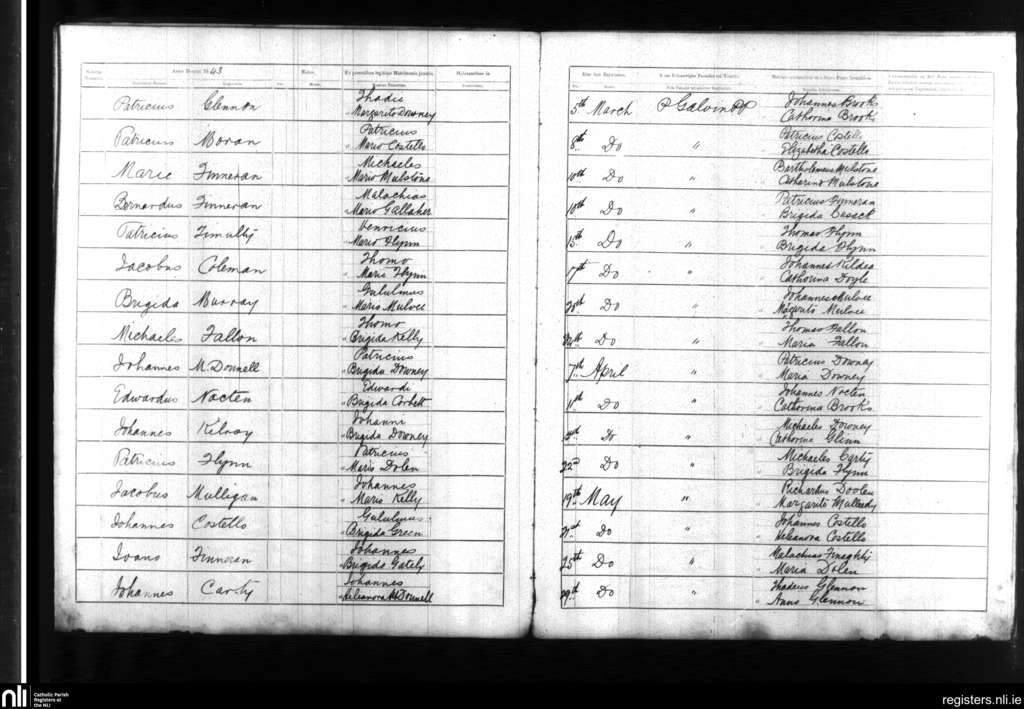 Anno Domini 1843
Patricius Glennon Thadie
" Margarita Downey
5th March P Galvin PP Johannes Brooks
" Catherina Brooks
Patricius Moran Patricius
" Maria Costello
8th Do " Patricius Costello
" Elizabetha Costello
Marie Finneran Michaeles
" Maria Mulstone
10th Do " Bartholemeus Mulstone
" Catharina Mulstone
Bernardus Finneran Malachias
" Maria Gallaher
10th Do " Patricius Finneran
" Brigida Cusack
Patricius Henricius
" Maria Flynn
15th Do " Thomas Flynn
" Brigida Flynn
Jacobus Coleman Thomo
" Maria Flynn
17th Do " Johannes Kildea
" Catherina Doyle
Brigida Murray Gulielmus
" Maria Mulvee
20th Do " Johannes Mulvee
" Margarita Mulvee
Michaeles Fallon Thomo
" Brigida Kelly
24th Do " Thomas Fallon
" Maria Fallon
Johannes McDonnell Patricius
" Brigida Downey
7th April " Patricius Downey
" Maria Downey
Edwardus Nocten Edwardi
" Brigida Corbett
11th Do " Johannes Nocten
" Catherina Brooks
Johannes Kilroy Johanni
" Brigida Downey
Do " Michaeles Downey
Catherina Glinn
Patricius Flynn Patricius
" Maria Dolen
22nd Do " Michaeles Carty
" Brigida Flynn
Jacobus Mulligan Johannes
" Maria Kelly
19th May " Richardus Doolen
" Margarita Mulleady
Johannes Costello Gulielmus
" Brigida Green
21st Do " Johannes Costello
" Heleanora Costello
Joans Finneran Johannes
" Brigida Gately
25th Do " Malachias
" Maria Dolen
Johannes Carty Johannes
" Heleanora McDonnell
29th Do " Thadeus Glennon
" Anna Glennon
nli Catholic Parish
Registers at
the NLI
registers.nli.ie